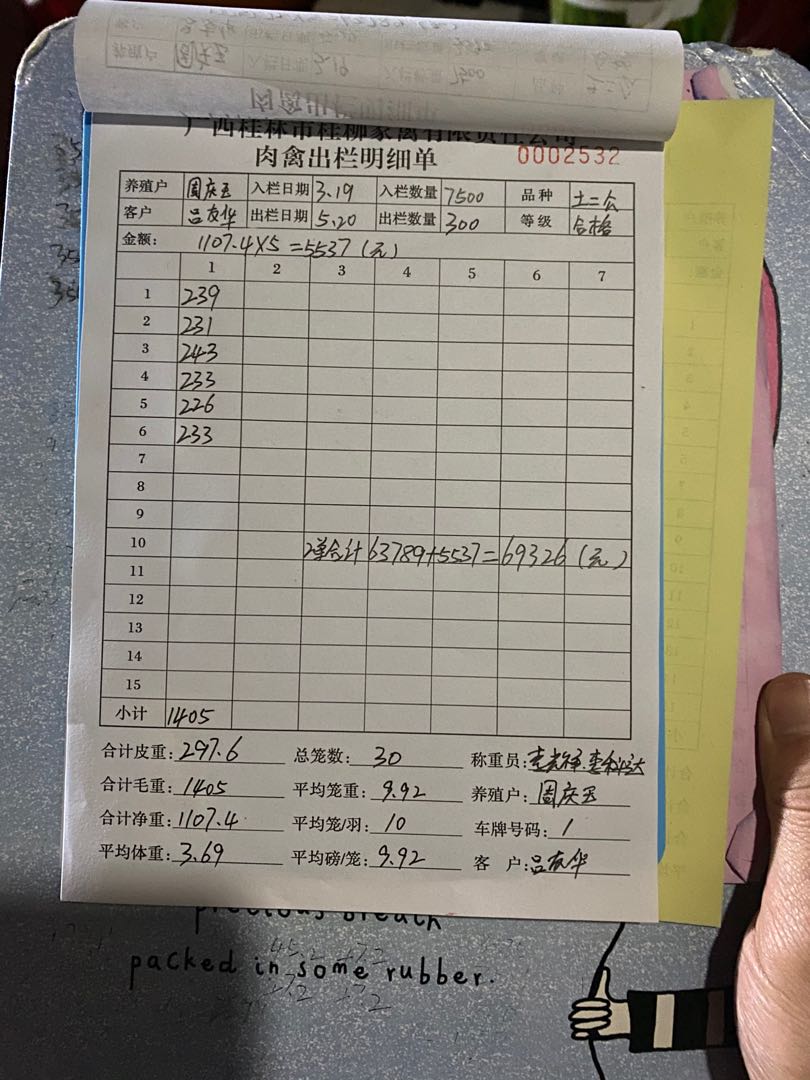 广西桂林市桂柳家禽有限责任公司
肉禽出栏明细单 0002532
养殖户 周庆玉 入栏日期 3.19 入栏数量 7500 品种 土二公
客户 吕友华 出栏日期 5.20 出栏数量 300 等级 合格
金额: 1107.4×5=5537(元)
1 2 3 4 5 6 7
1 239
2 231
3 243
4 233
5 226
6 233
7
8
9
10 2单合计 63789+5537=69326(元)
11
12
13
14
15
小计 1405
合计皮重: 297.6 总笼数: 30 称重员:
合计毛重: 1405 平均笼重: 9.92 养殖户: 周庆玉
合计净重: 1107.4 平均笼/羽: 10 车牌号码: /
平均体重: 3.69 平均磅/笼: 9.92 客 户: 吕友华
precious breath
packed in some rubber.